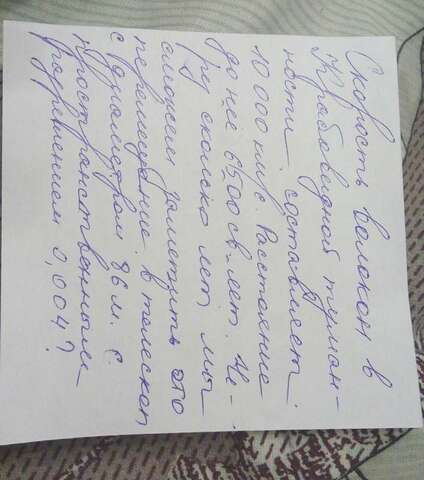 Скорость волокон в
Крабовидной туман-
ности составляет
10 000 км/с. Расстояние
до нее 6500 св. лет. Че-
рез сколько лет мы
сможем заметить это
перемещение в телескоп
с диаметром 36 м. с
пространственным
разрешением 0,004?